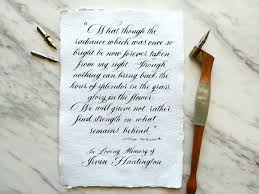 "What though the
radiance which was once so
bright be now forever taken
from my sight. Though
nothing can bring back the
hour of splendor in the grass,
glory in the flower.
We will grieve not, rather
find strength in what
remains behind."
In Loving Memory of
Irvin Huntington